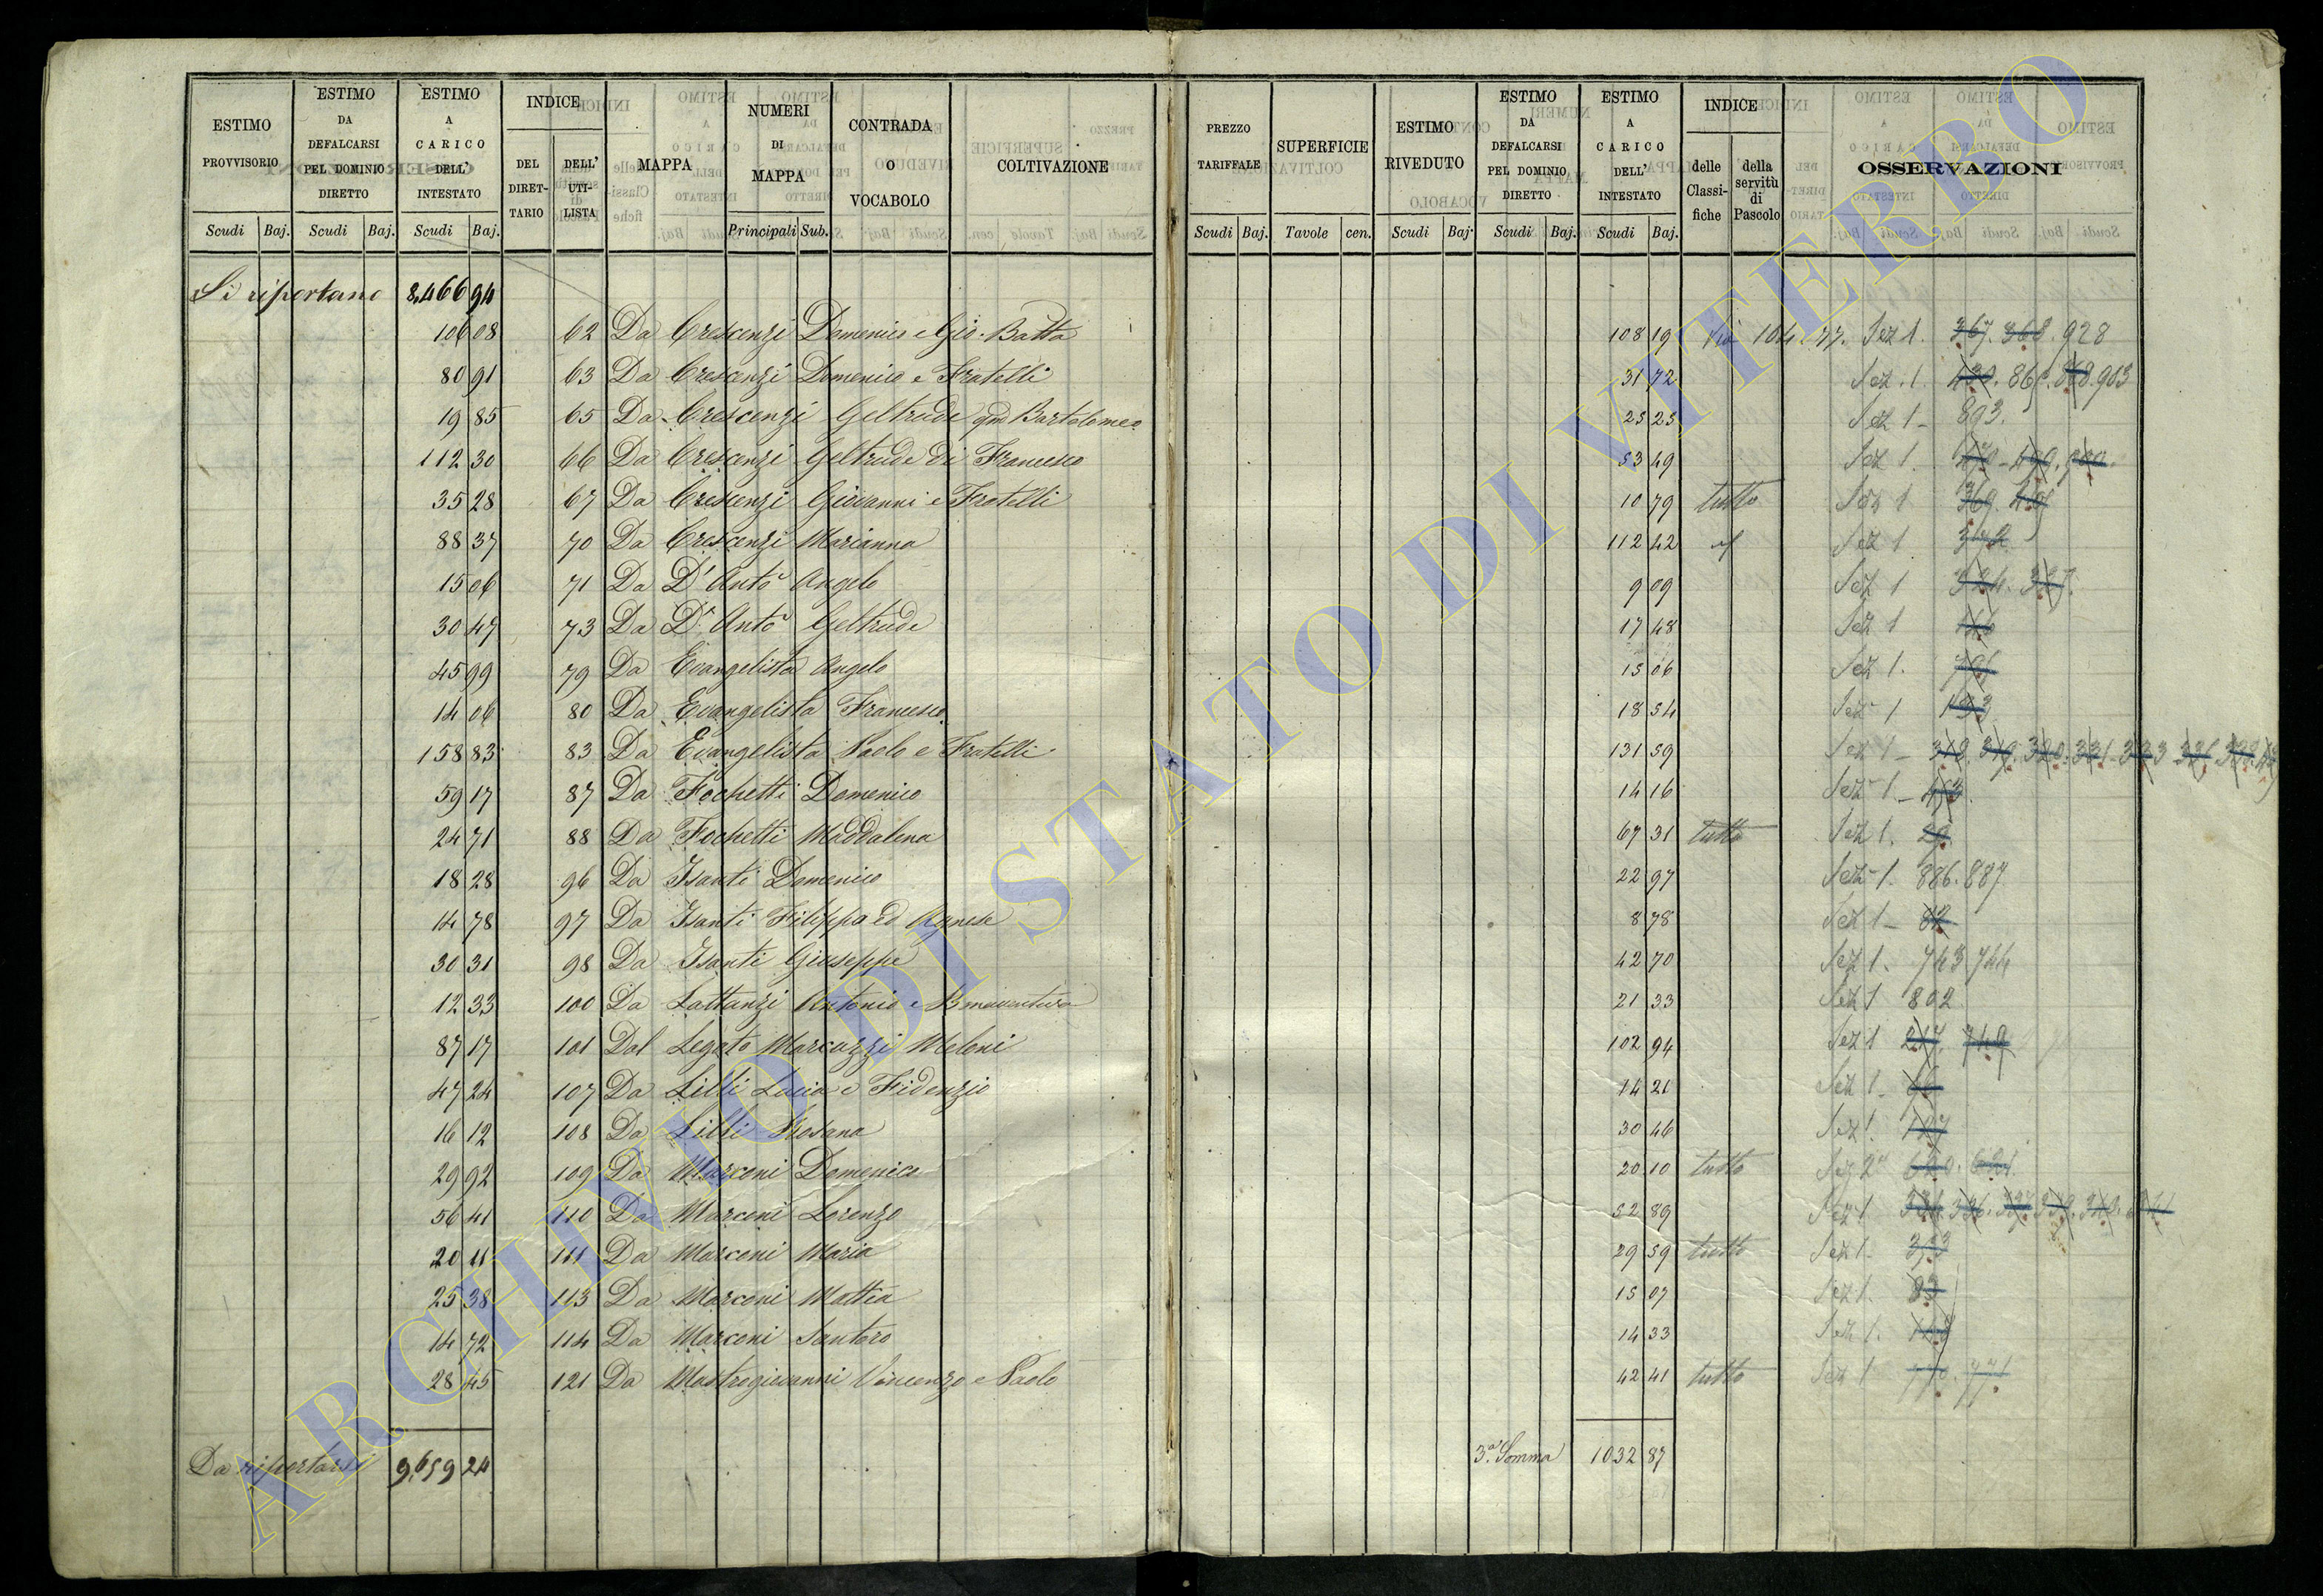 ESTIMO PROVVISORIO
ESTIMO DA DEFALCARSI PEL DOMINIO DIRETTO
ESTIMO A CARICO DELL' INTESTATO
INDICE
DEL DIRET-TARIO
DELL' UTI-LISTA
MAPPA
NUMERI DI MAPPA
CONTRADA O VOCABOLO
COLTIVAZIONE
PREZZO TARIFFALE
SUPERFICIE
ESTIMO RIVEDUTO
ESTIMO DA DEFALCARSI PEL DOMINIO DIRETTO
ESTIMO A CARICO DELL' INTESTATO
INDICE
delle Classi-fiche
della servitù di Pascolo
OSSERVAZIONI
Scudi Baj. Scudi Baj. Scudi Baj. Principali Sub. Scudi Baj. Tavole cen. Scudi Baj. Scudi Baj. Scudi Baj.
Si riportano 8,466 94
106 08 62 Da Crescenzi Domenico e Gio. Batta 108 19 104.77. Sez 1. 367. 368. 928
80 91 63 Da Crescenzi Domenico e Fratelli 31 72 Sez. 1. 903
19 85 65 Da Crescenzi Geltrude qm Bartolomeo 23 23 Sez 1 - 893.
112 30 66 Da Crescenzi Geltrude di Francesco 53 49 Sez 1.
35 28 67 Da Crescenzi Giovanni e Fratelli 10 79 tutto Sez 1 369.
88 37 70 Da Crescenzi Marianna 112 42 Sez 1
15 06 71 Da D'Anto Angelo 9 09 Sez 1 324. 327.
30 47 73 Da D'Anto Geltrude 17 48 Sez 1
45 99 79 Da Evangelista Angelo 15 06 Sez 1.
14 06 80 Da Evangelista Francesco 18 54 Sez 1 193
158 83 83 Da Evangelista Paolo e Fratelli 131 59 Sez 1 - 318. 319. 320. 331 - 333
59 17 87 Da Fochetti Domenico 14 16 Sez 1 -
24 71 88 Da Fochetti Maddalena 67 31 tutto Sez 1. 29
18 28 96 Da Isanti Domenico 22 97 Sez 1. 886. 887
14 78 97 Da Isanti Filippo ed Agnese 8 78 Sez 1 - 82
30 31 98 Da Isanti Giuseppe 42 70 Sez 1. 743 744
12 33 100 Da Lattanzi Antonio e Bonaventura 21 33 Sez 1 802
87 17 101 Dal Legato Marcuzzi Meloni 102 94 Sez 1 217. 749
47 24 107 Da Lilli Lucia e Fidenzio 14 21 Sez 1 -
16 12 108 Da Lilli Rosana 30 46 Sez 1. 127
29 92 109 Da Marconi Domenico 20 10 tutto Sez 2a 620. 621
56 41 110 Da Marconi Lorenzo 52 89 Sez 1.
20 11 111 Da Marconi Maria 29 59 tutto Sez 1. 353
25 38 113 Da Marconi Mattia 15 07 Sez 1. 83
14 72 114 Da Marconi Santoro 14 33 Sez 1.
28 45 121 Da Mastrogiovanni Vincenzo e Paolo 42 41 tutto Sez 1 770. 771
Da riportarsi 9,659 24 3a. Somma 1032 87
ARCHIVIO DI STATO DI VITERBO